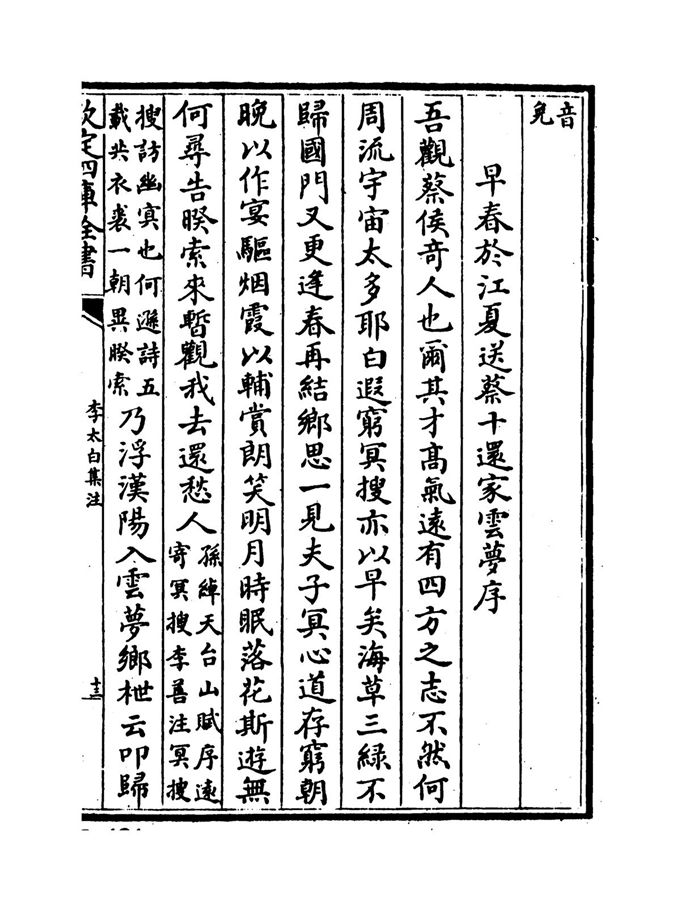 音
免
早春於江夏送蔡十還家雲夢序
吾觀蔡侯奇人也爾其才高氣遠有四方之志不然何
周流宇宙太多耶白遐窮冥搜亦以早矣海草三緑不
歸國門又更逢春再結鄉思一見夫子冥心道存窮朝
晚以作宴驅烟霞以輔賞朗笑明月時眠落花斯遊無
何尋告暌索來暫觀我去還愁人孫綽天台山賦序遠
寄冥搜李善注冥搜
搜訪幽冥也何遜詩五
載共衣裘一朝異暌索乃浮漢陽入雲夢鄉枻云叩歸
欽定四庫全書
李太白集注
十三